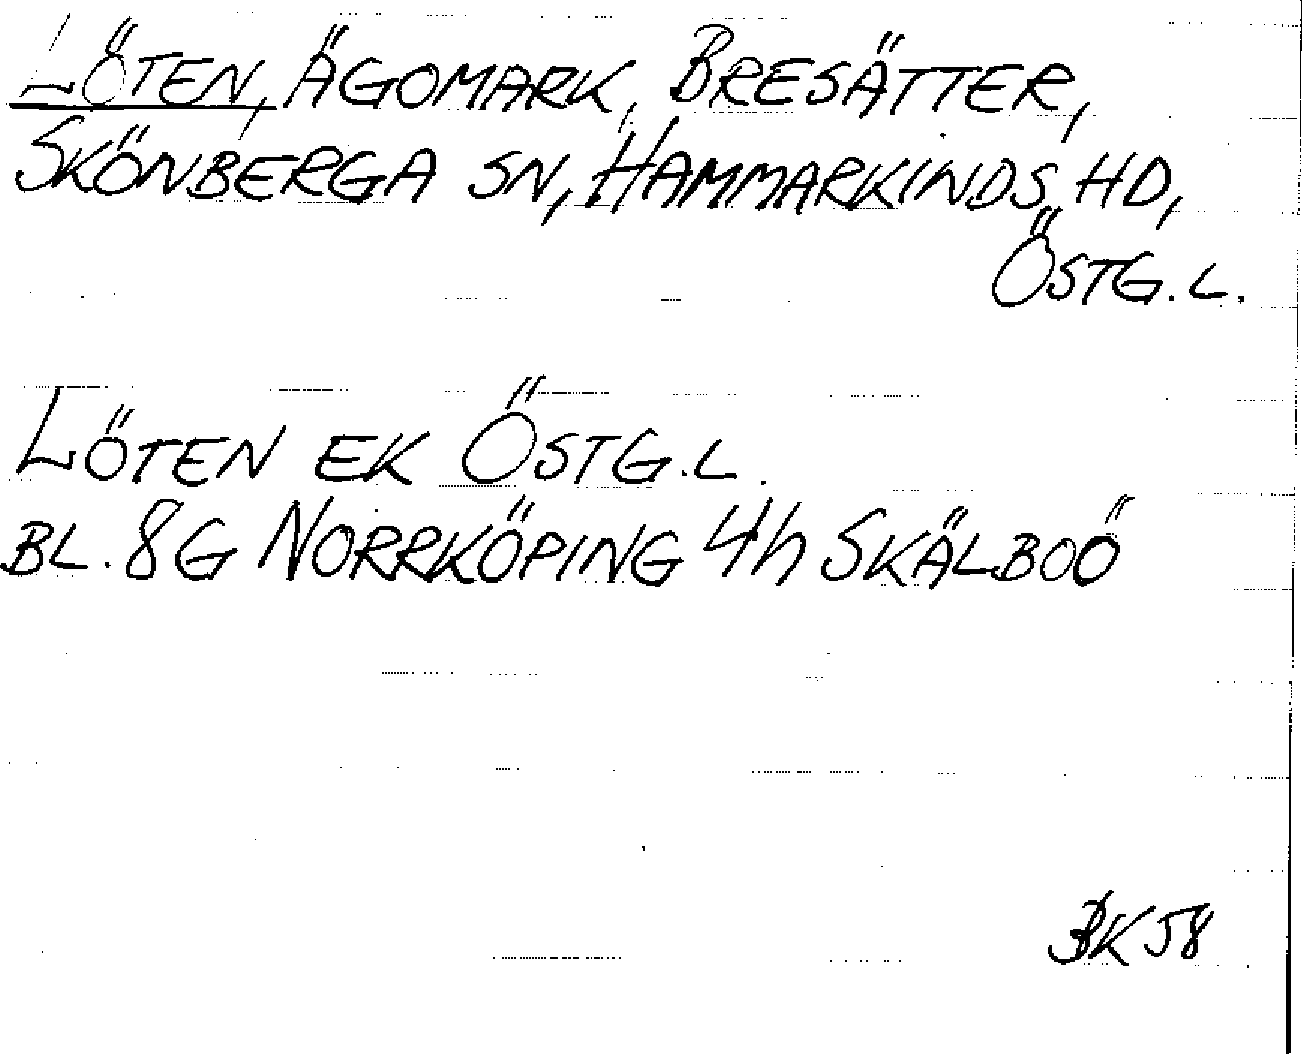 LÖTEN, ÄGOMARK, BRESÄTTER,
SKÖNBERGA SN, HAMMARKINDS HD,
ÖSTG.L.
LÖTEN EK ÖSTG.L.
BL. 8G NORRKÖPING 4h SKÄLBOÖ
BK 58